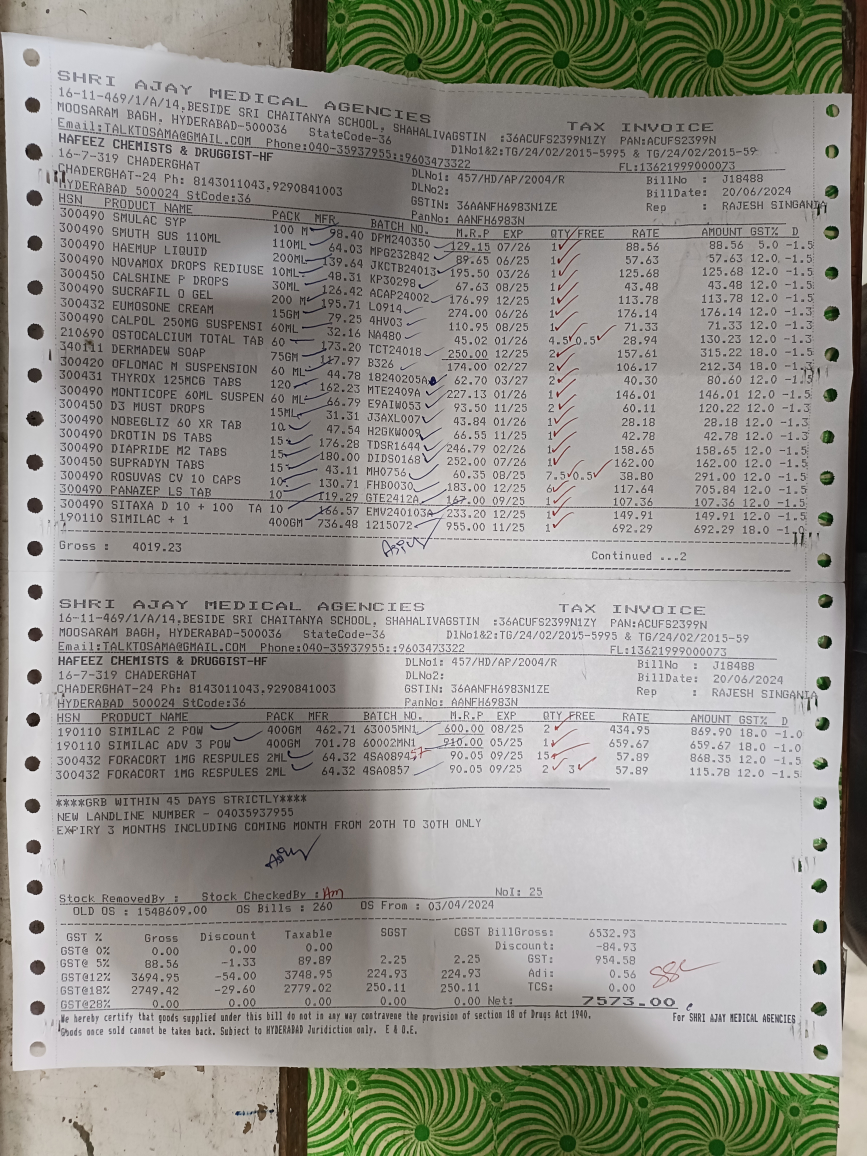 SHRI AJAY MEDICAL AGENCIES TAX INVOICE
16-11-469/1/A/14,BESIDE SRI CHAITANYA SCHOOL, SHAHALIVAGSTIN :36ACUFS2399N1ZY PAN:ACUFS2399N
MOOSARAM BAGH, HYDERABAD-500036 StateCode-36 DlNo1&2:TG/24/02/2015-5995 & TG/24/02/2015-59
Email:TALKTOSAMA@GMAIL.COM Phone:040-35937955::9603473322 FL:13621999000073
HAFEEZ CHEMISTS & DRUGGIST-HF DLNo1: 457/HD/AP/2004/R BillNo : J18488
16-7-319 CHADERGHAT DLNo2: BillDate: 20/06/2024
CHADERGHAT-24 Ph: 8143011043,9290841003 GSTIN: 36AANFH6983N1ZE Rep : RAJESH SINGANIA
HYDERABAD 500024 StCode:36 PanNo: AANFH6983N
HSN PRODUCT NAME PACK MFR BATCH NO. M.R.P EXP QTY FREE RATE AMOUNT GST% D
300490 SMULAC SYP 100 M 98.40 DPM240350 129.15 07/26 1 88.56 88.56 5.0 -1.5
300490 SMUTH SUS 110ML 110ML 64.03 MPG232842 89.65 06/25 1 57.63 57.63 12.0 -1.5
300490 HAEMUP LIQUID 200ML 139.64 JKCTB24013 195.50 03/26 1 125.68 125.68 12.0 -1.5
300490 NOVAMOX DROPS REDIUSE 10ML 48.31 KP30298 67.63 08/25 1 43.48 43.48 12.0 -1.5
300450 CALSHINE P DROPS 30ML 126.42 ACAP24002 176.99 12/25 1 113.78 113.78 12.0 -1.5
300490 SUCRAFIL O GEL 200 M 195.71 L0914 274.00 06/26 1 176.14 176.14 12.0 -1.3
300432 EUMOSONE CREAM 15GM 79.25 4HV03 110.95 08/25 1 71.33 71.33 12.0 -1.3
300490 CALPOL 250MG SUSPENSI 60ML 32.16 NA480 45.02 01/26 4.5 0.5 28.94 130.23 12.0 -1.5
210690 OSTOCALCIUM TOTAL TAB 60 173.20 TCT24018 250.00 12/25 2 157.61 315.22 18.0 -1.5
340111 DERMADEW SOAP 75GM 117.97 B326 174.00 02/27 2 106.17 212.34 18.0 -1.3
300420 OFLOMAC M SUSPENSION 60 ML 44.78 18240205A 62.70 03/27 2 40.30 80.60 12.0 -1.5
300431 THYROX 125MCG TABS 120 162.23 MTE2409A 227.13 01/26 1 146.01 146.01 12.0 -1.5
300490 MONTICOPE 60ML SUSPEN 60 ML 66.79 E9AIW053 93.50 11/25 2 60.11 120.22 12.0 -1.3
300450 D3 MUST DROPS 15ML 31.31 J3AXL007 43.84 01/26 1 28.18 28.18 12.0 -1.3
300490 NOBEGLIZ 60 XR TAB 10 47.54 H2GKW009 66.55 11/25 1 42.78 42.78 12.0 -1.3
300490 DROTIN DS TABS 15 176.28 TDSR1644 246.79 02/26 1 158.65 158.65 12.0 -1.5
300490 DIAPRIDE M2 TABS 15 180.00 DIDS0168 252.00 07/26 1 162.00 162.00 12.0 -1.5
300450 SUPRADYN TABS 15 43.11 MH0756 60.35 08/25 7.5 0.5 38.80 291.00 12.0 -1.5
300490 ROSUVAS CV 10 CAPS 10 130.71 FHB0030 183.00 12/25 6 117.64 705.84 12.0 -1.5
300490 PANAZEP LS TAB 10 119.29 GTE2412A 167.00 09/25 1 107.36 107.36 12.0 -1.5
300490 SITAXA D 10 + 100 TA 10 166.57 EMV240103A 233.20 12/25 1 149.91 149.91 12.0 -1.5
190110 SIMILAC + 1 400GM 736.48 1215072 955.00 11/25 1 692.29 692.29 18.0 -1.0
Gross : 4019.23 Continued ...2
SHRI AJAY MEDICAL AGENCIES TAX INVOICE
16-11-469/1/A/14,BESIDE SRI CHAITANYA SCHOOL, SHAHALIVAGSTIN :36ACUFS2399N1ZY PAN:ACUFS2399N
MOOSARAM BAGH, HYDERABAD-500036 StateCode-36 DlNo1&2:TG/24/02/2015-5995 & TG/24/02/2015-59
Email:TALKTOSAMA@GMAIL.COM Phone:040-35937955::9603473322 FL:13621999000073
HAFEEZ CHEMISTS & DRUGGIST-HF DLNo1: 457/HD/AP/2004/R BillNo : J18488
16-7-319 CHADERGHAT DLNo2: BillDate: 20/06/2024
CHADERGHAT-24 Ph: 8143011043,9290841003 GSTIN: 36AANFH6983N1ZE Rep : RAJESH SINGANIA
HYDERABAD 500024 StCode:36 PanNo: AANFH6983N
HSN PRODUCT NAME PACK MFR BATCH NO. M.R.P EXP QTY FREE RATE AMOUNT GST% D
190110 SIMILAC 2 POW 400GM 462.71 63005MN1 600.00 08/25 2 434.95 869.90 18.0 -1.0
190110 SIMILAC ADV 3 POW 400GM 701.78 60002MN1 910.00 05/25 1 659.67 659.67 18.0 -1.0
300432 FORACORT 1MG RESPULES 2ML 64.32 4SA0894 57 90.05 09/25 15 57.89 868.35 12.0 -1.5
300432 FORACORT 1MG RESPULES 2ML 64.32 4SA0857 90.05 09/25 2 3 57.89 115.78 12.0 -1.5
****GRB WITHIN 45 DAYS STRICTLY****
NEW LANDLINE NUMBER - 04035937955
EXPIRY 3 MONTHS INCLUDING COMING MONTH FROM 20TH TO 30TH ONLY
Stock RemovedBy : Stock CheckedBy : Am NoI: 25
OLD OS : 1548609.00 OS Bills : 260 OS From : 03/04/2024
GST % Gross Discount Taxable SGST CGST BillGross: 6532.93
GST@ 0% 0.00 0.00 0.00 Discount: -84.93
GST@ 5% 88.56 -1.33 89.89 2.25 2.25 GST: 954.58
GST@12% 3694.95 -54.00 3748.95 224.93 224.93 Adj: 0.56
GST@18% 2749.42 -29.60 2779.02 250.11 250.11 TCS: 0.00
GST@28% 0.00 0.00 0.00 0.00 0.00 Net: 7573.00
We hereby certify that goods supplied under this bill do not in any way contravene the provision of section 18 of Drugs Act 1940. For SHRI AJAY MEDICAL AGENCIES
Goods once sold cannot be taken back. Subject to HYDERABAD Juridiction only. E & O.E.